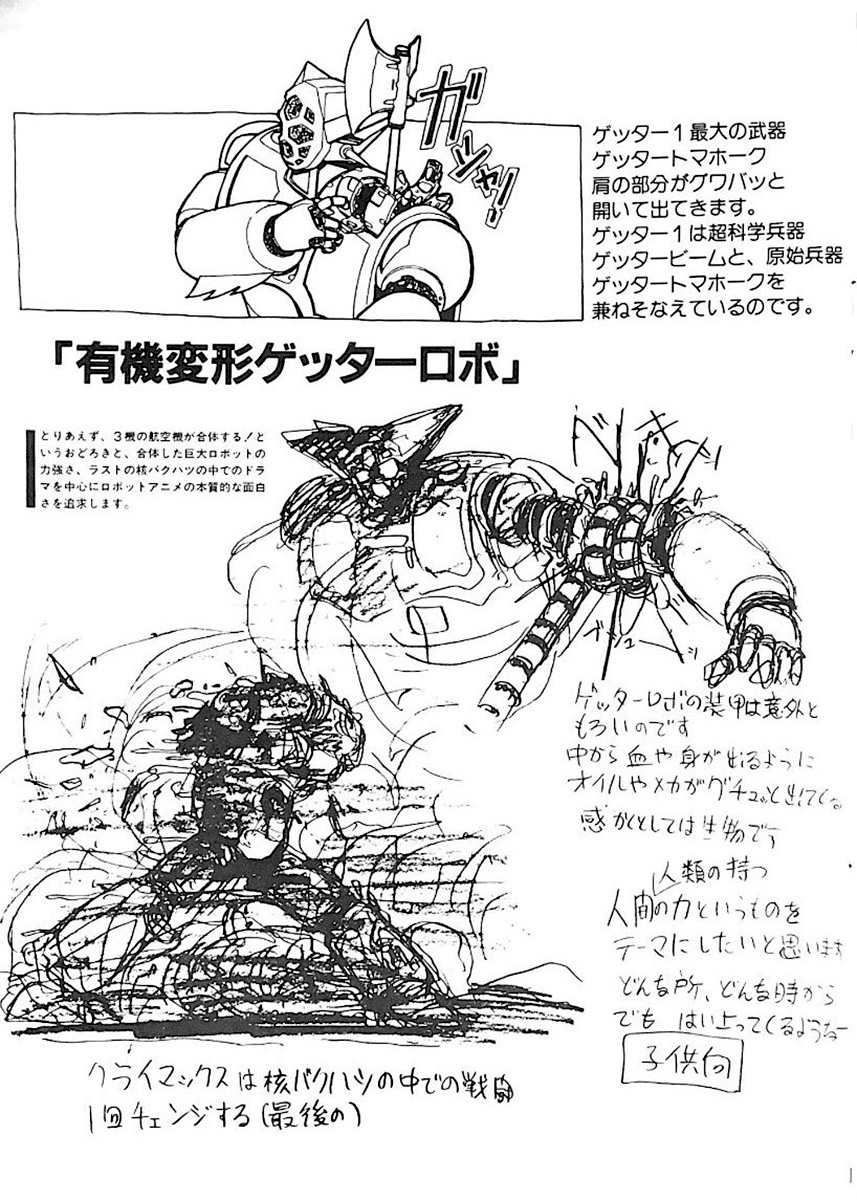 ガシャン
ゲッター1最大の武器
ゲッタートマホーク
肩の部分がグワバッと
開いて出てきます。
ゲッター1は超科学兵器
ゲッタービームと、原始兵器
ゲッタートマホークを
兼ねそなえているのです。
「有機変形ゲッターロボ」
とりあえず、3機の航空機が合体する!と
いうおどろきと、合体した巨大ロボットの
力強さ、ラストの核バクハツの中でのドラ
マを中心にロボットアニメの本質的な面白
さを追求します。
ゲッターロボの装甲は意外と
もろいのです
中から血や身が出るように
オイルやメカがグチュッと出てくる
感かくとしては生物です
人類の持つ
人間の力というものを
テーマにしたいと思います
どんな所、どんな時から
でも はい上ってくるような
子供向
クライマックスは核バクハツの中での戦闘
1回チェンジする(最後の)